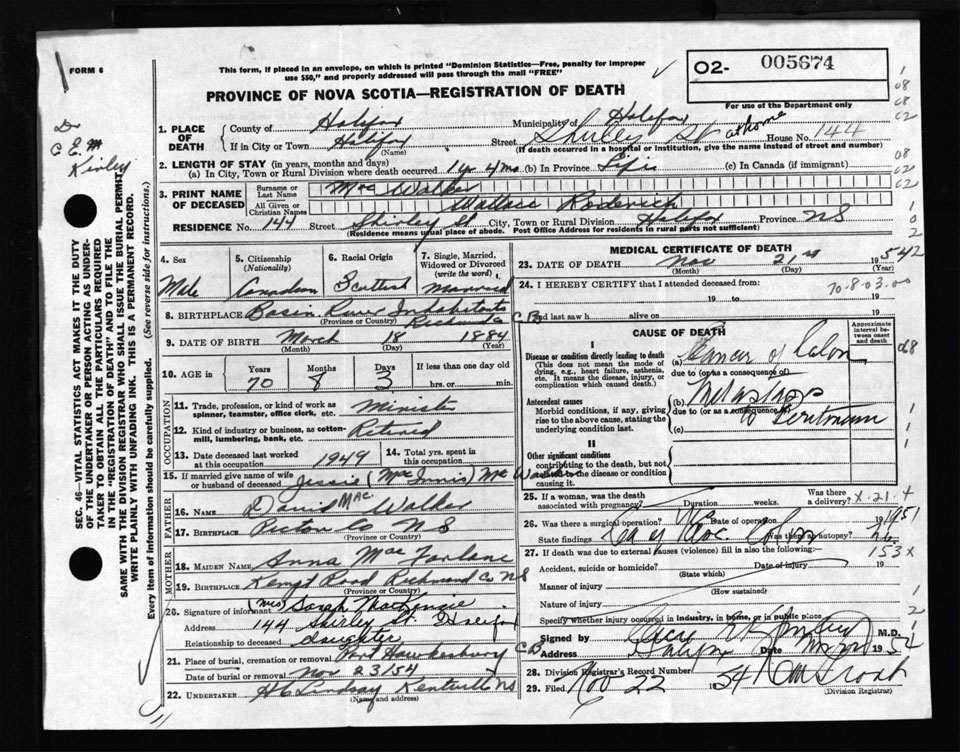 FORM 6
This form, if placed in an envelope, on which is printed "Dominion Statistics—Free, penalty for improper
use $50," and properly addressed will pass through the mail "FREE"
PROVINCE OF NOVA SCOTIA—REGISTRATION OF DEATH
O2- 005674
For use of the Department only
SEC. 46—VITAL STATISTICS ACT MAKES IT THE DUTY
OF THE UNDERTAKER OR PERSON ACTING AS UNDER-
TAKER TO OBTAIN ALL THE PARTICULARS REQUIRED
IN THE "REGISTRATION OF DEATH" AND TO FILE THE
SAME WITH THE DIVISION REGISTRAR WHO SHALL ISSUE THE BURIAL PERMIT
WRITE PLAINLY WITH UNFADING INK. THIS IS A PERMANENT RECORD.
Every item of information should be carefully supplied. (See reverse side for instructions.)
Dr
C E M
Kinley
1. PLACE OF DEATH
County of Halifax Municipality of Halifax
If in City or Town Halifax Street Shirley St at home House No. 144
(Name) (If death occurred in a hospital or institution, give the name instead of street and number)
2. LENGTH OF STAY (in years, months and days)
(a) In City, Town or Rural Division where death occurred 1 yr 4 mo (b) In Province Life (c) In Canada (if immigrant)
3. PRINT NAME OF DECEASED
Surname or Last Name Mac Walker
All Given or Christian Names Wallace Roderick
RESIDENCE No. 144 Street Shirley St City, Town or Rural Division Halifax Province NS
(Residence means usual place of abode. Post Office Address for residents in rural parts not sufficient)
4. Sex Male
5. Citizenship (Nationality) Canadian
6. Racial Origin Scottish
7. Single, Married, Widowed or Divorced (write the word) Married
8. BIRTHPLACE Basin River Inhabitants Richmond Co CB
(Province or Country)
9. DATE OF BIRTH March 18 1884
(Month) (Day) (Year)
10. AGE in Years 70 Months 8 Days 3 If less than one day old hrs. or min.
OCCUPATION
11. Trade, profession, or kind of work as spinner, teamster, office clerk, etc. Minister
12. Kind of industry or business, as cotton-mill, lumbering, bank, etc. Retired
13. Date deceased last worked at this occupation 1949
14. Total yrs. spent in this occupation
15. If married give name of wife or husband of deceased Jessie (Mac Innis) Mac Walker
FATHER
16. Name David Mac Walker
17. Birthplace Pictou Co NS
(Province or Country)
MOTHER
18. MAIDEN NAME Anna Mac Farlane
19. BIRTHPLACE Kempt Road Richmond Co NS
(Province or Country)
20. Signature of informant (Mrs) Sarah MacKenzie
Address 144 Shirley St. Halifax
Relationship to deceased daughter
21. Place of burial, cremation or removal Port Hawkesbury CB
Date of burial or removal Nov 23/54
22. UNDERTAKER H C Lindsay Kentville NS
(Name and address)
MEDICAL CERTIFICATE OF DEATH
23. DATE OF DEATH Nov 21st 1954
(Month) (Day) (Year)
24. I HEREBY CERTIFY that I attended deceased from:
70.8.03.00
19 to 19
and last saw h alive on 19
CAUSE OF DEATH
Approximate interval between onset and death
I
Disease or condition directly leading to death
(This does not mean the mode of dying, e.g., heart failure, asthenia, etc. It means the disease, injury, or complication which caused death.)
(a) Cancer of Colon
due to (or as a consequence of)
Antecedent causes
Morbid conditions, if any, giving rise to the above cause, stating the underlying condition last.
(b) Metastases
due to (or as a consequence of)
to Peritoneum
(c)
II
Other significant conditions
contributing to the death, but not related to the disease or condition causing it.
25. If a woman, was the death associated with pregnancy? Duration weeks. Was there a delivery?
26. Was there a surgical operation? Date of operation 1951
State findings Was there an autopsy? No
27. If death was due to external causes (violence) fill in also the following:
153X
Accident, suicide or homicide? Date of injury 19
(State which)
Manner of injury
(How sustained)
Nature of injury
Specify whether injury occurred in industry, in home, or in public place
Signed by M.D.
Address Halifax Date 1954
28. Division Registrar's Record Number
29. Filed Nov 22 1954
(Division Registrar)